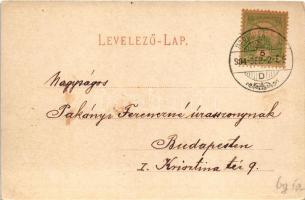 LEVELEZŐ-LAP.
Nagyságos
Pakányi Ferenczné úrasszonynak
Budapesten
I. Krisztina tér 9.